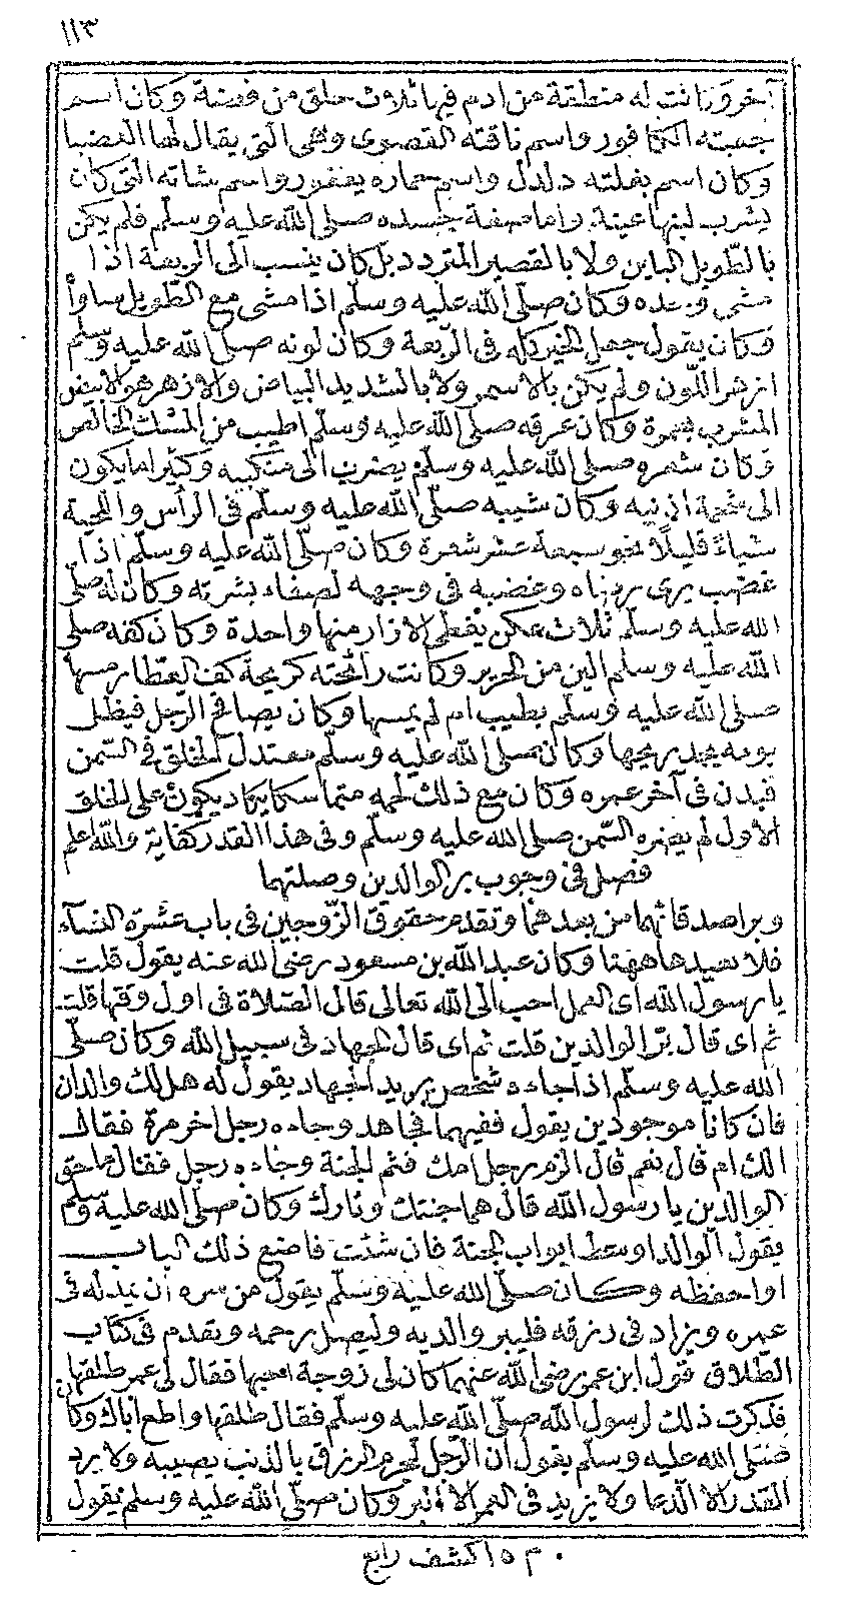 ١١٣
آخر وكانت له منطقة من ادم فيها ثلاث حلق من فضة وكان اسم
جعبته الكافور واسم ناقته القصوى وهى التى يقال لها العضبا
وكان اسم بغلته دلدل واسم حماره يعفور واسم شاته التى كان
يشرب لبنها عينة واما صفة جسده صلى الله عليه وسلم فلم يكن
بالطويل الباين ولا بالقصير المتردد بل كان ينسب الى الربعة اذا
مشى وحده وكان صلى الله عليه وسلم اذا مشى مع الطويل ساواه
وكان يقول جعل الخير كله فى الربعة وكان لونه صلى الله عليه وسلم
ازهر اللون ولم يكن بالاسمر ولا بالشديد البياض والازهر هو الابيض
المشرب بحمرة وكان عرقه صلى الله عليه وسلم اطيب من المسك الخالص
وكان شعره صلى الله عليه وسلم يضرب الى منكبيه وكثيرا ما يكون
الى شحمة اذنيه وكان شيبه صلى الله عليه وسلم فى الرأس واللحية
شياءً قليلًا نحو سبعة عشر شعرة وكان صلى الله عليه وسلم اذا
غضب يرى رضاه وغضبه فى وجهه لصفاء بشرته وكان له صلى
الله عليه وسلم ثلاث عكن يغطى الازار منها واحدة وكان كفه صلى
الله عليه وسلم الين من الحرير وكانت رائحته كريحة كف العطار مسها
صلى الله عليه وسلم بطيب ام لم يمسها وكان يصافح الرجل فيظل
يومه يجد ريحها وكان صلى الله عليه وسلم معتدل الخلق فى السمن
فبدن فى آخر عمره وكان مع ذلك لحمه متماسكا يكاد يكون على الخلق
الاول لم يضره السمن صلى الله عليه وسلم وفى هذا القدر كفاية والله اعلم
فصل فى وجوب بر الوالدين وصلتهما
وبر اصدقائهما من بعدهما وتقدم حقوق الزوجين فى باب عشرة النسآء
فلا نعيدها ههنا وكان عبد الله بن مسعود رضى الله عنه يقول قلت
يا رسول الله اى العمل احب الى الله تعالى قال الصلاة فى اول وقتها قلت
ثم اى قال بر الوالدين قلت ثم اى قال الجهاد فى سبيل الله وكان صلى
الله عليه وسلم اذا جاءه شخص يريد الجهاد يقول له هل لك والدان
فان كانا موجودين يقول ففيهما فجاهد وجاءه رجل اخر مرة فقال
الك ام قال نعم قال الزم رجل امك فثم الجنة وجاءه رجل فقال ما حق
الوالدين يا رسول الله قال هما جنتك ونارك وكان صلى الله عليه وسلم
يقول الوالد اوسط ابواب الجنة فان شئت فاضع ذلك الباب
او احفظه وكان صلى الله عليه وسلم يقول من سره ان يمد له فى
عمره ويزاد فى رزقه فليبر والديه وليصل رحمه وتقدم فى كتاب
الطلاق قول ابن عمر رضى الله عنهما كان لى زوجة احبها فقال لى عمر طلقها
فذكرت ذلك لرسول الله صلى الله عليه وسلم فقال طلقها واطع اباك وكان
صلى الله عليه وسلم يقول ان الرجل ليحرم الرزق بالذنب يصيبه ولا يرد
القدر الا الدعا ولا يزيد فى العمر الا البر وكان صلى الله عليه وسلم يقول
م ١٥ كشف رابع